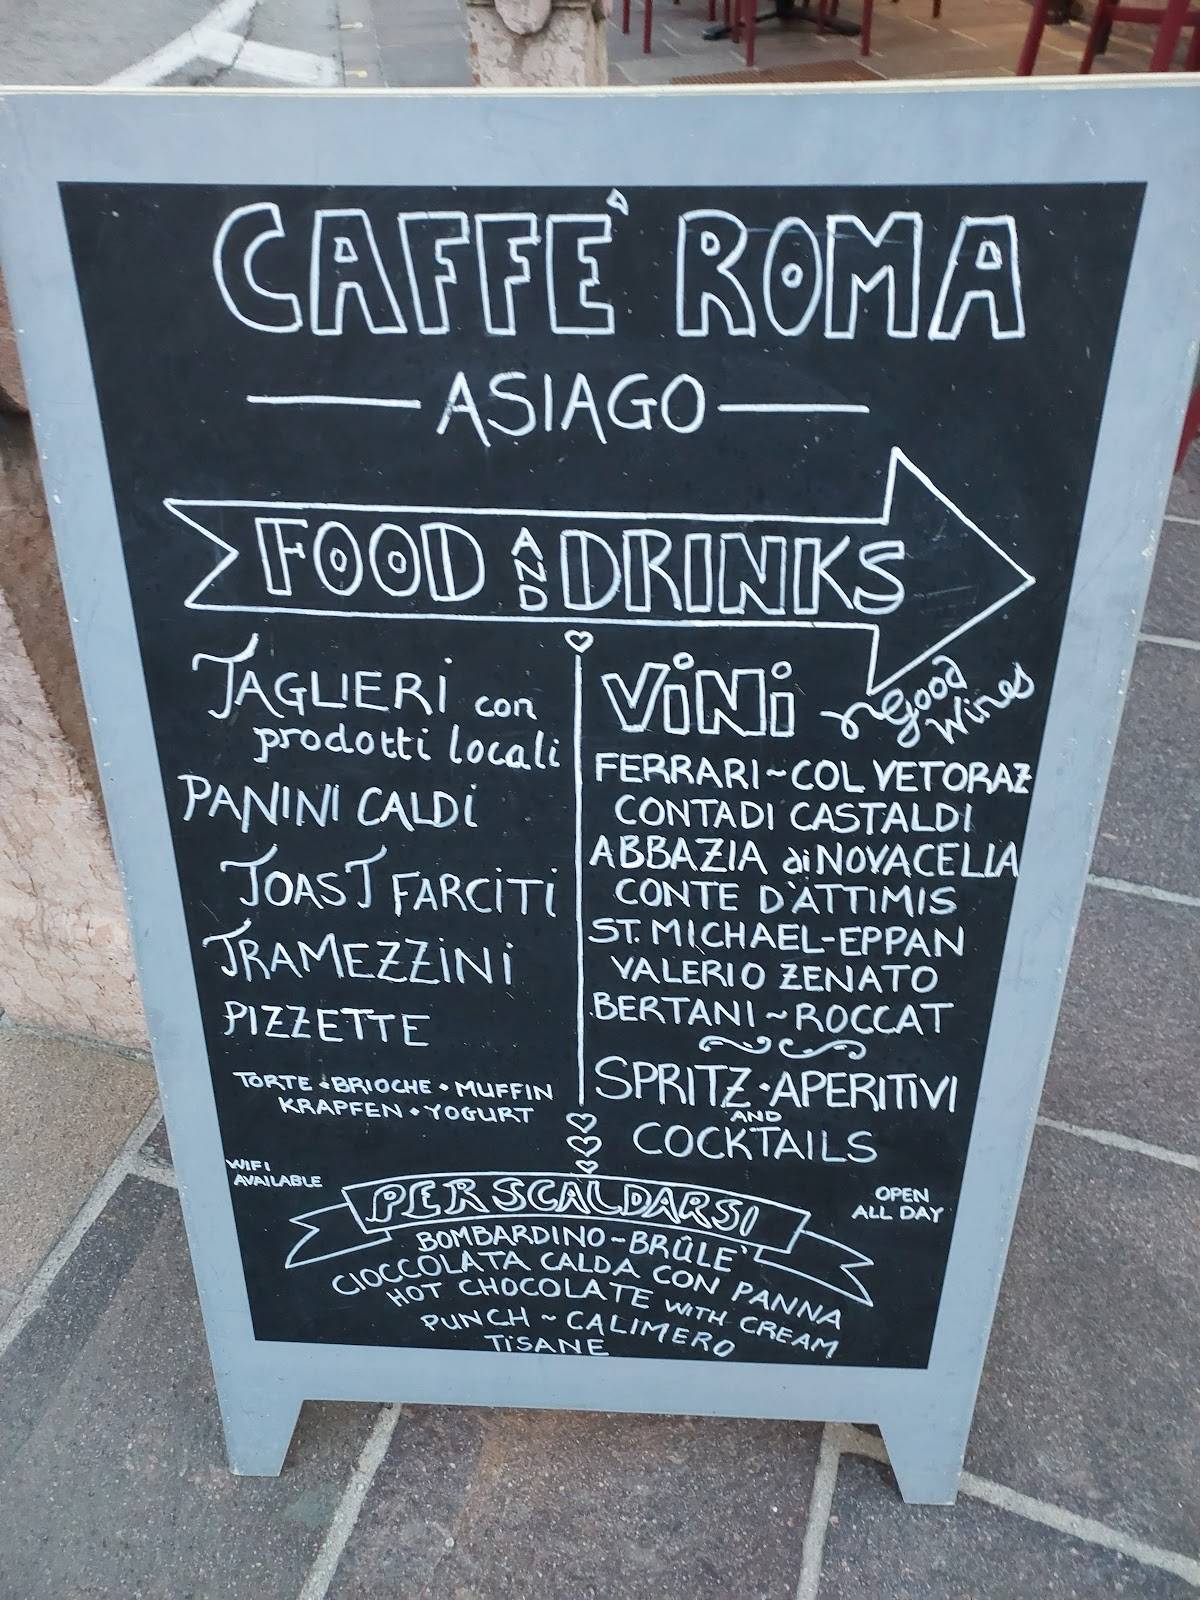 CAFFE' ROMA
ASIAGO
FOOD AND DRINKS
TAGLIERI con
prodotti locali
PANINI CALDi
TOAST FARCiTi
TRAMEZZiNi
PIZZETTE
TORTE • BRIOCHE • MUFFIN
KRAPFEN • YOGURT
ViNi
good
wines
FERRARI ~ COL VETORAZ
CONTADI CASTALDI
ABBAZIA di NOVACELLA
CONTE D'ATTIMIS
ST. MICHAEL-EPPAN
VALERIO ZENATO
BERTANI ~ ROCCAT
SPRITZ • APERITIVI
AND
COCKTAILS
WIFI
AVAILABLE
OPEN
ALL DAY
PER SCALDARSI
BOMBARDINO ~ BRÛLE'
CIOCCOLATA CALDA CON PANNA
HOT CHOCOLATE WITH CREAM
PUNCH ~ CALIMERO
TiSANE